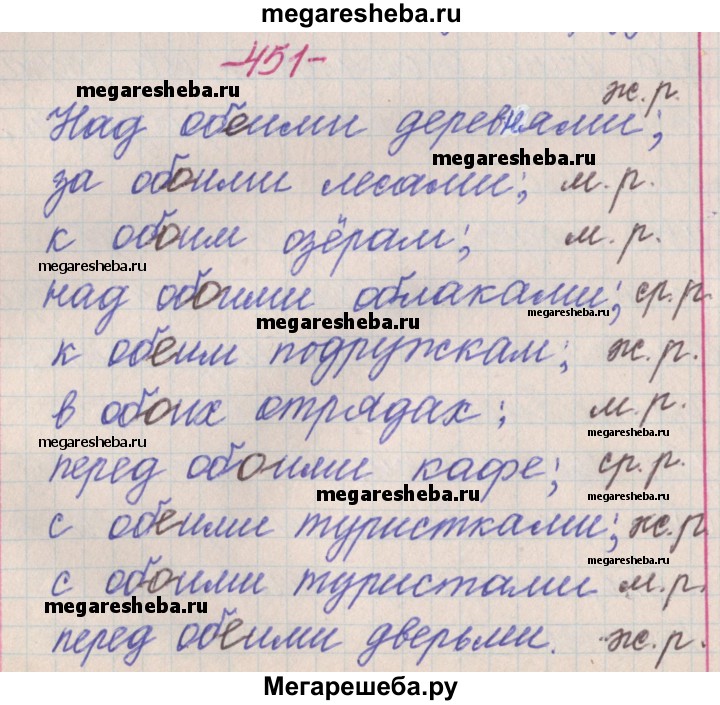 megaresheba.ru
-451-
megaresheba.ru
ж.р.
Над обеими деревнями;
megaresheba.ru
за обоими лесами; м.р.
к обоим озёрам; м.р.
megaresheba.ru
над обоими облаками; ср.р.
megaresheba.ru
megaresheba.ru
к обеим подружкам; ж.р.
в обоих отрядах; м.р.
megaresheba.ru
megaresheba.ru
перед обоими кафе; ср.р.
megaresheba.ru
megaresheba.ru
с обеими туристками; ж.р.
megaresheba.ru
с обоими туристами м.р.
megaresheba.ru
перед обеими дверьми. ж.р.
Мегарешеба.ру